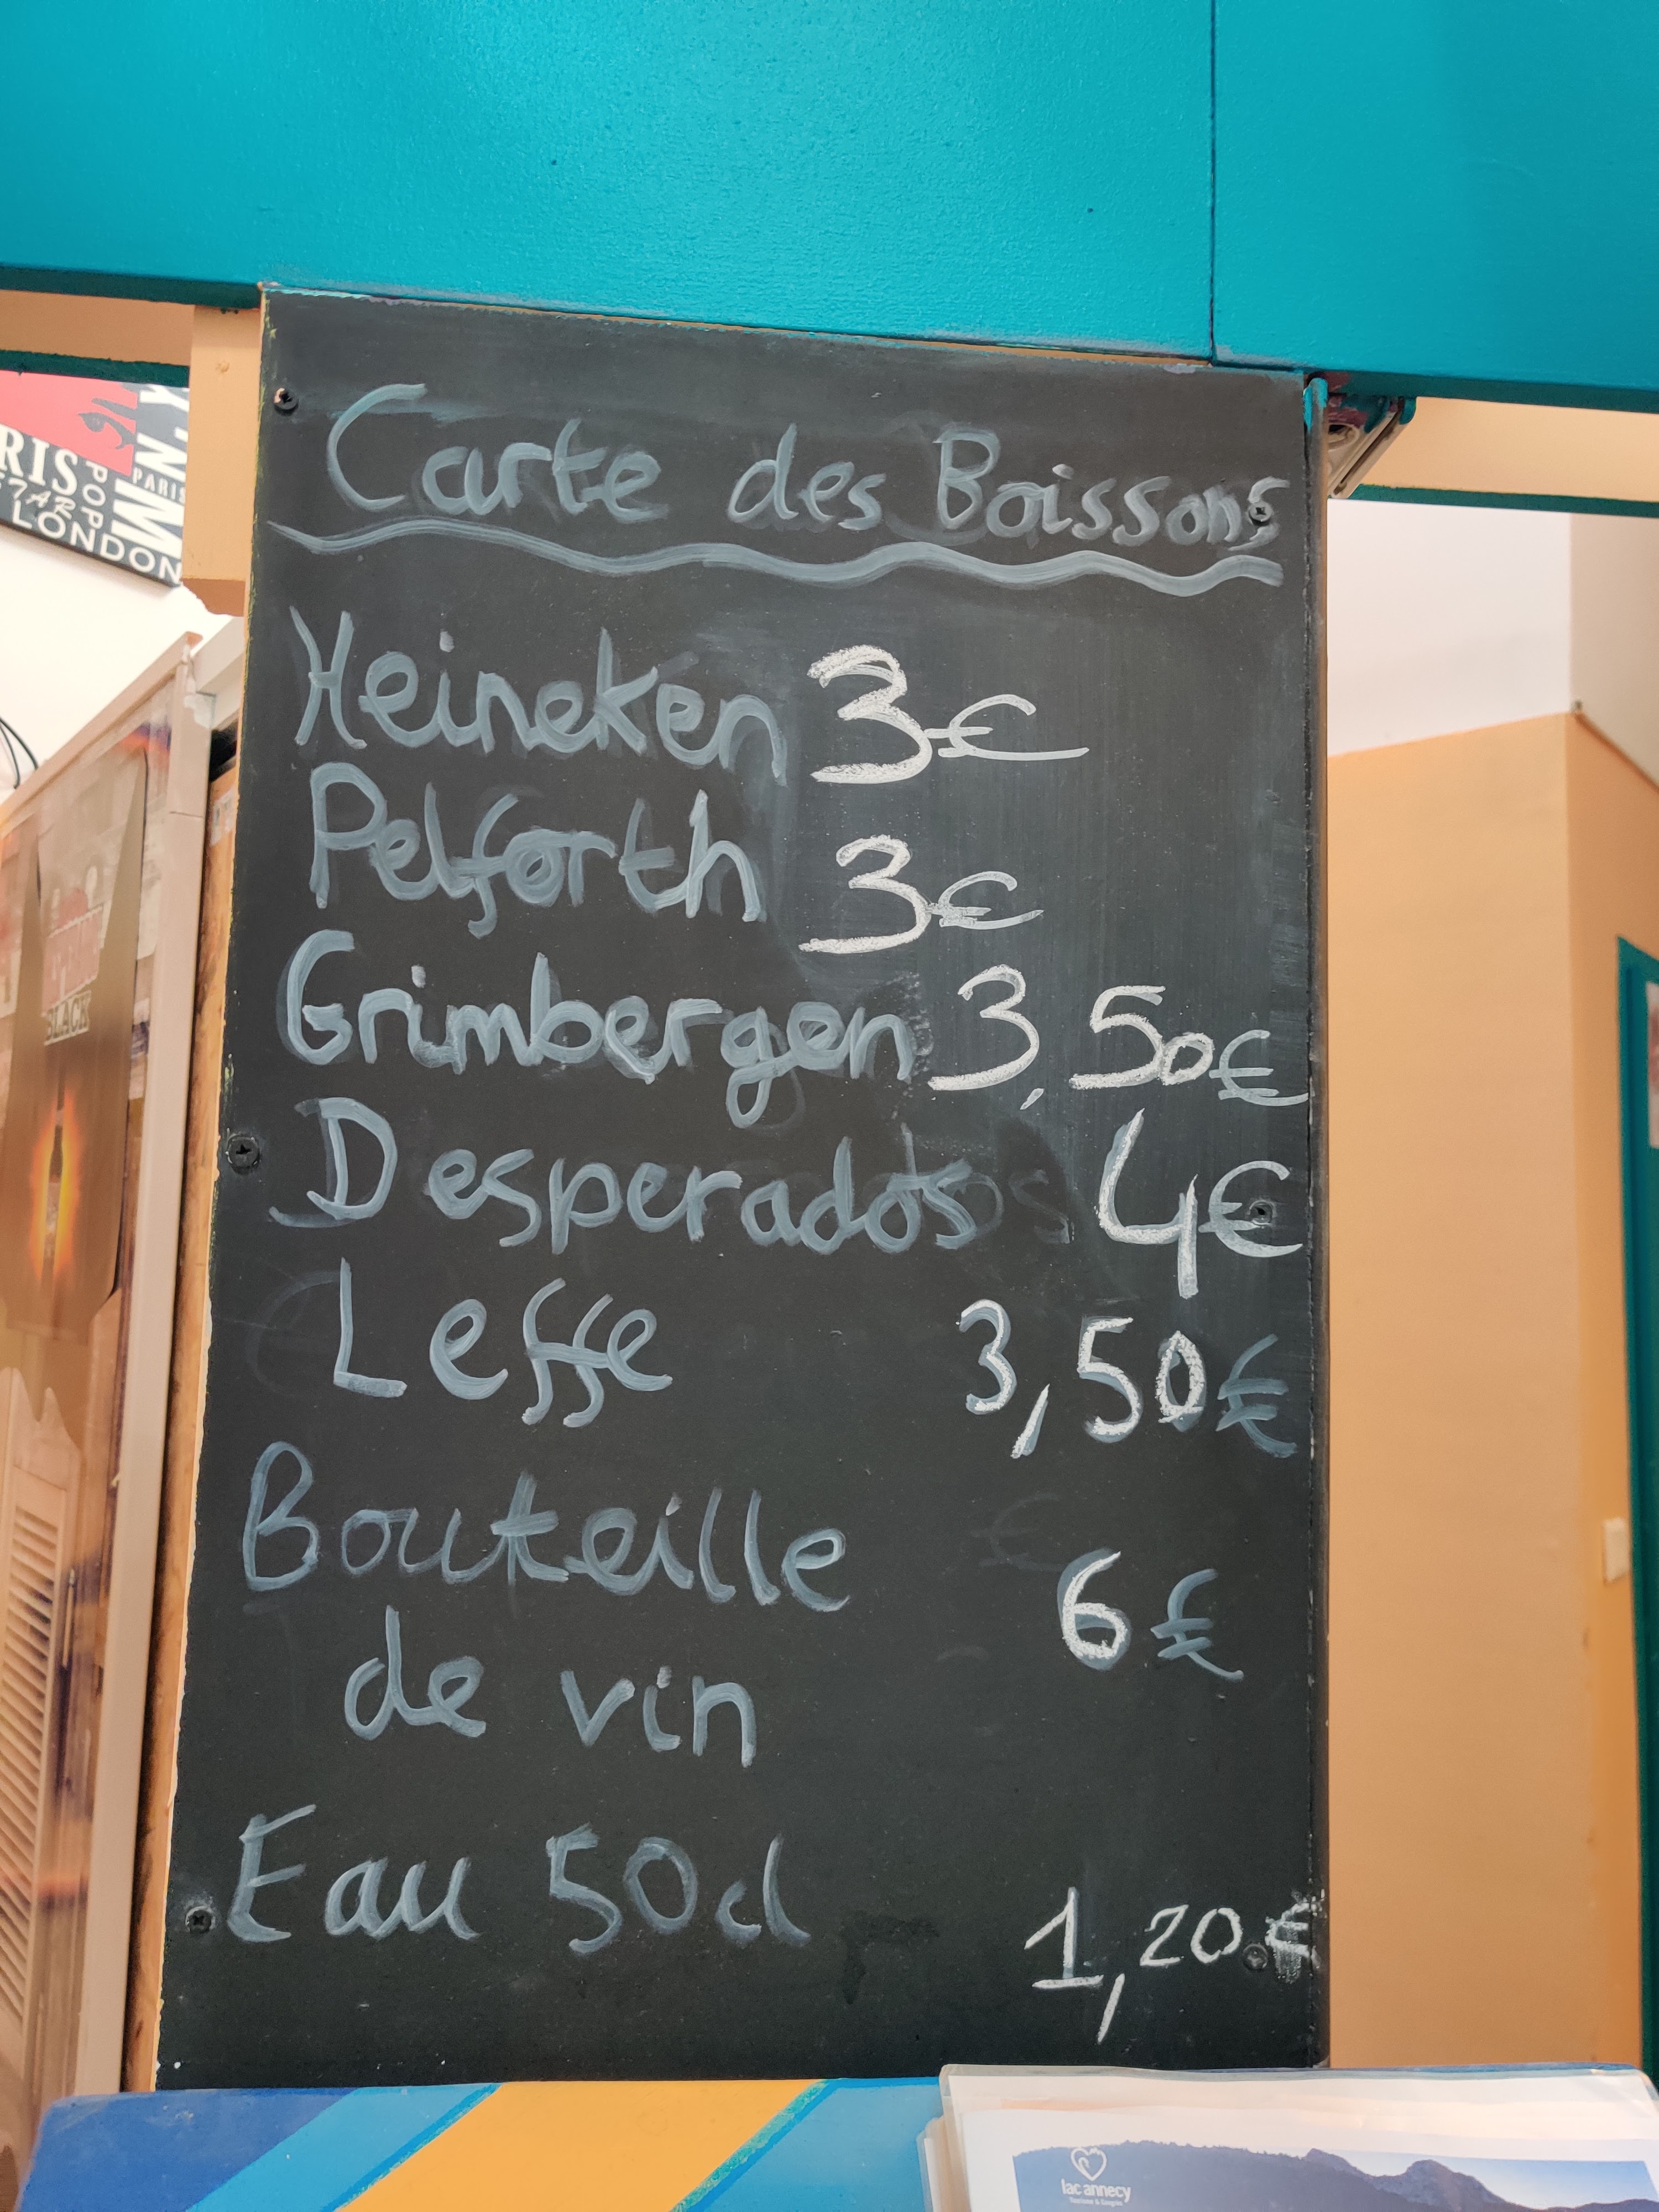 RIS
STAR
POP
PARIS
LONDON
BLACK
Carte des Boissons
Heineken 3€
Pelforth 3€
Grimbergen 3,50€
Desperados 4€
Leffe 3,50€
Bouteille
de vin 6€
Eau 50cl 1,20€
lac annecy